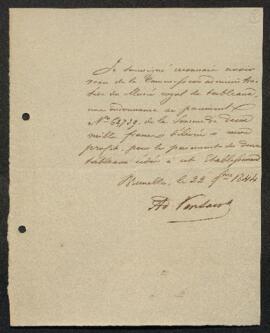 Je soussigné reconnais avoir
reçu de la Commission administra-
tive du Musée royal de tableaux,
une ordonnance de payement
N° 64739, de la somme de deux
mille francs délivrée à mon
profit, pour le payement de deux
tableaux cédés à cet Etablissement
Bruxelles, le 22 1844